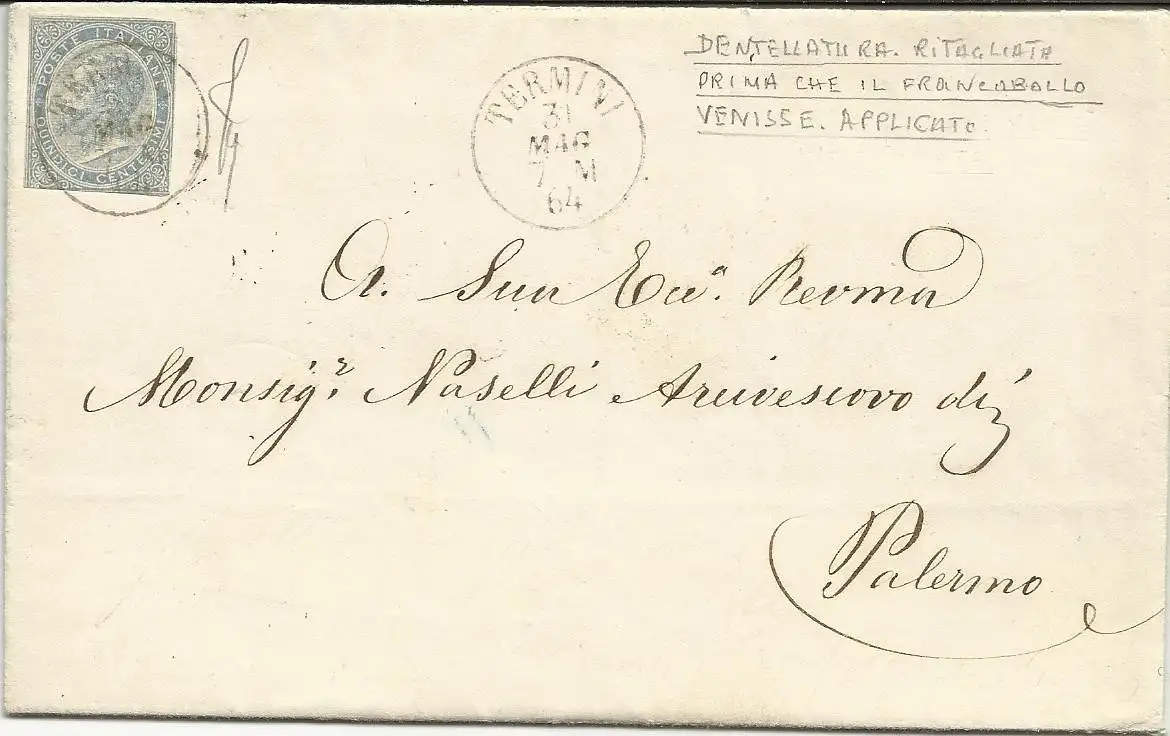 POSTE ITALIANE
QUINDICI CENTESIMI
MAG
TERMINI
31
MAG
7 M
64
DENTELLATURA. RITAGLIATA
PRIMA CHE IL FRANCOBOLLO
VENISSE. APPLICATO
A. Sua Ecc.ª Revma
Monsigʳ. Naselli Arcivescovo di
Palermo